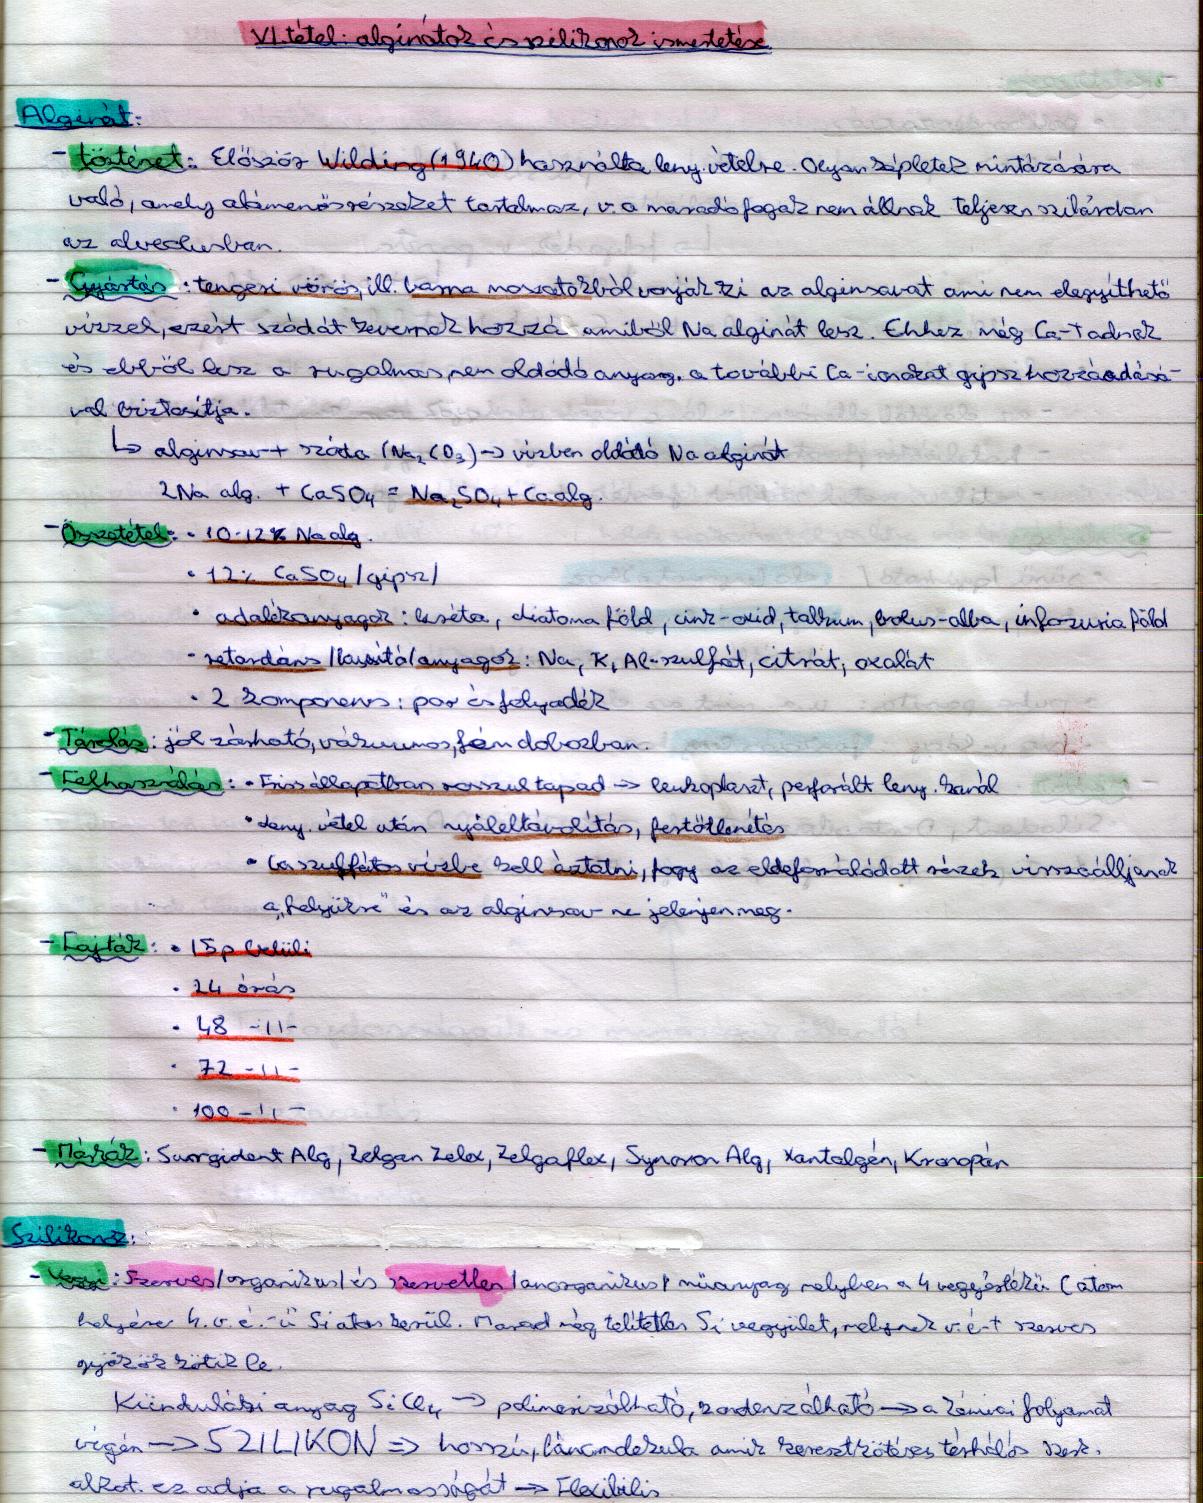 VI. tétel: alginátok és szilikonok ismertetése
Alginát:
- történet: Először Wilding (1940) használta leny. vételre. Olyan képletek mintázására
való, amely alámenős részeket tartalmaz, v. a maradó fogak nem állnak teljesen szilárdan
az alveolusban.
- Gyártás: tengeri vörös, ill. barna moszatokból vonják ki az alginsavat ami nem elegyíthető
vízzel, ezért szódát kevernek hozzá amiből Na alginát lesz. Ehhez még Ca-t adnak
és ebből lesz a rugalmas, nem oldódó anyag. a további Ca-ionokat gipsz hozzáadásá-
val biztosítja.
↳ alginsav + szóda (Na2CO3) → vízben oldódó Na alginát
2Na alg. + CaSO4 = Na2SO4 + Ca alg.
- Összetétel: • 10-12% Na alg.
• 12% CaSO4 /gipsz/
• adalékanyagok: kréta, diatoma föld, cink-oxid, talkum, bolus-alba, infuzuria föld
- retardáns /lassító/ anyagok: Na, K, Al-szulfát, citrát, oxalát
• 2 komponens: por és folyadék
- Tárolás: jól zárható, vákuumos, fém dobozban.
- Felhasználás: • Friss állapotban rosszul tapad → leukoplaszt, perforált leny. kanál
• Leny. vétel után nyáleltávolítás, fertőtlenítés
• Ca szulfátos vízbe kell áztatni, hogy az eldeformálódott részek visszaálljanak
a „helyükre” és az alginsav ne jelenjen meg.
- Fajták: • 15p belüli
• 24 órás
• 48 -11-
• 72 -11-
• 100 -11-
- Márkák: Surgident Alg, Zelgan Zelex, Zelgaflex, Synoron Alg, Xantalgén, Kronopán
Szilikonok:
- Vegyi: Szerves /organikus/ és szervetlen /anorganikus/ műanyag melyben a 4 vegyértékű C atom
helyére 4. v. é.-ű Si atom kerül. Marad még telítetlen Si vegyület, melynek v.é-t szerves
gyökök kötik le.
Kiindulási anyag SiCl4 → polimerizálható, kondenzálható → a kémiai folyamat
végén → SZILIKON ⇒ hosszú, láncmolekula amik keresztkötéses térhálós szerk.
alkot. ez adja a rugalmasságát → Flexibilis